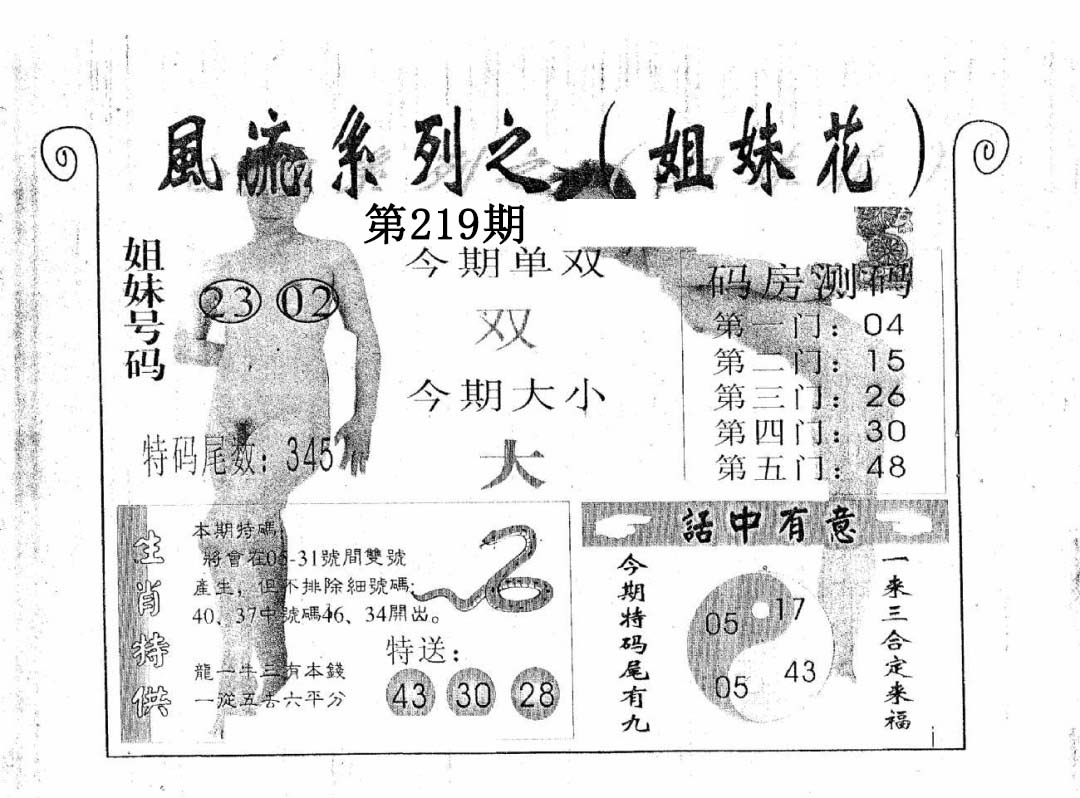 風流系列之（姐妹花）
第219期
姐妹号码
23 02
特码尾数：345
今期单双
双
今期大小
大
码房测码
第一门：04
第二门：15
第三门：26
第四门：30
第五门：48
生肖特供
本期特碼：
將會在05-31號間雙號
產生，但不排除細號碼；
40、37中號碼46、34開出。
龍一牛三有本錢
一從五去六平分
特送：
43 30 28
話中有意
今期特码尾有九
05 17
05 43
一来三合定来福